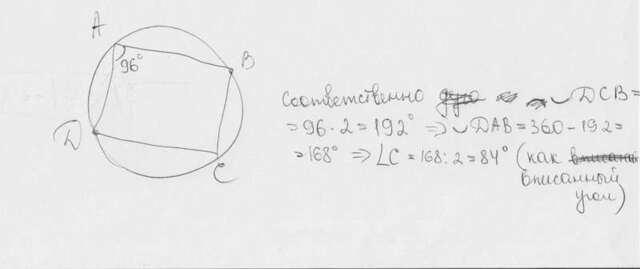 A
B
96°
D
C
Соответственно ◡ DCB=
=96·2=192° ⇒ ◡ DAB=360-192=
=168° ⇒ ∠C=168:2=84° (как
вписанный
угол)